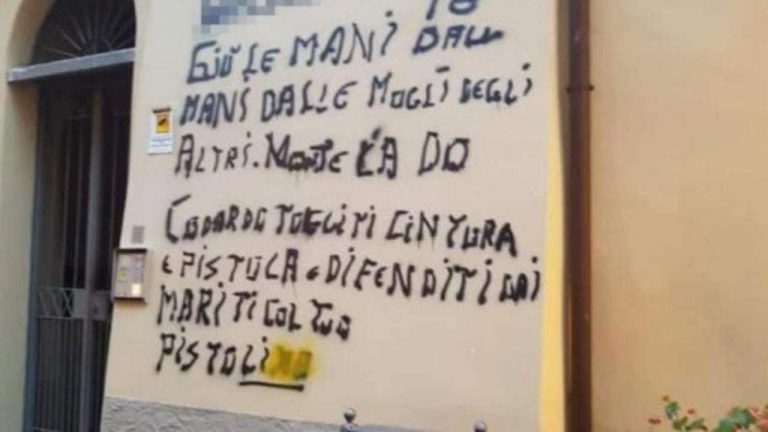 GIÙ LE MANI DALL
MANI DALLE MOGLI DEGLI
ALTRI. DO
CODARDO TOGLITI CINTURA
E PISTOLA E DIFENDITI DAI
MARITI COL TUO
PISTOLINO